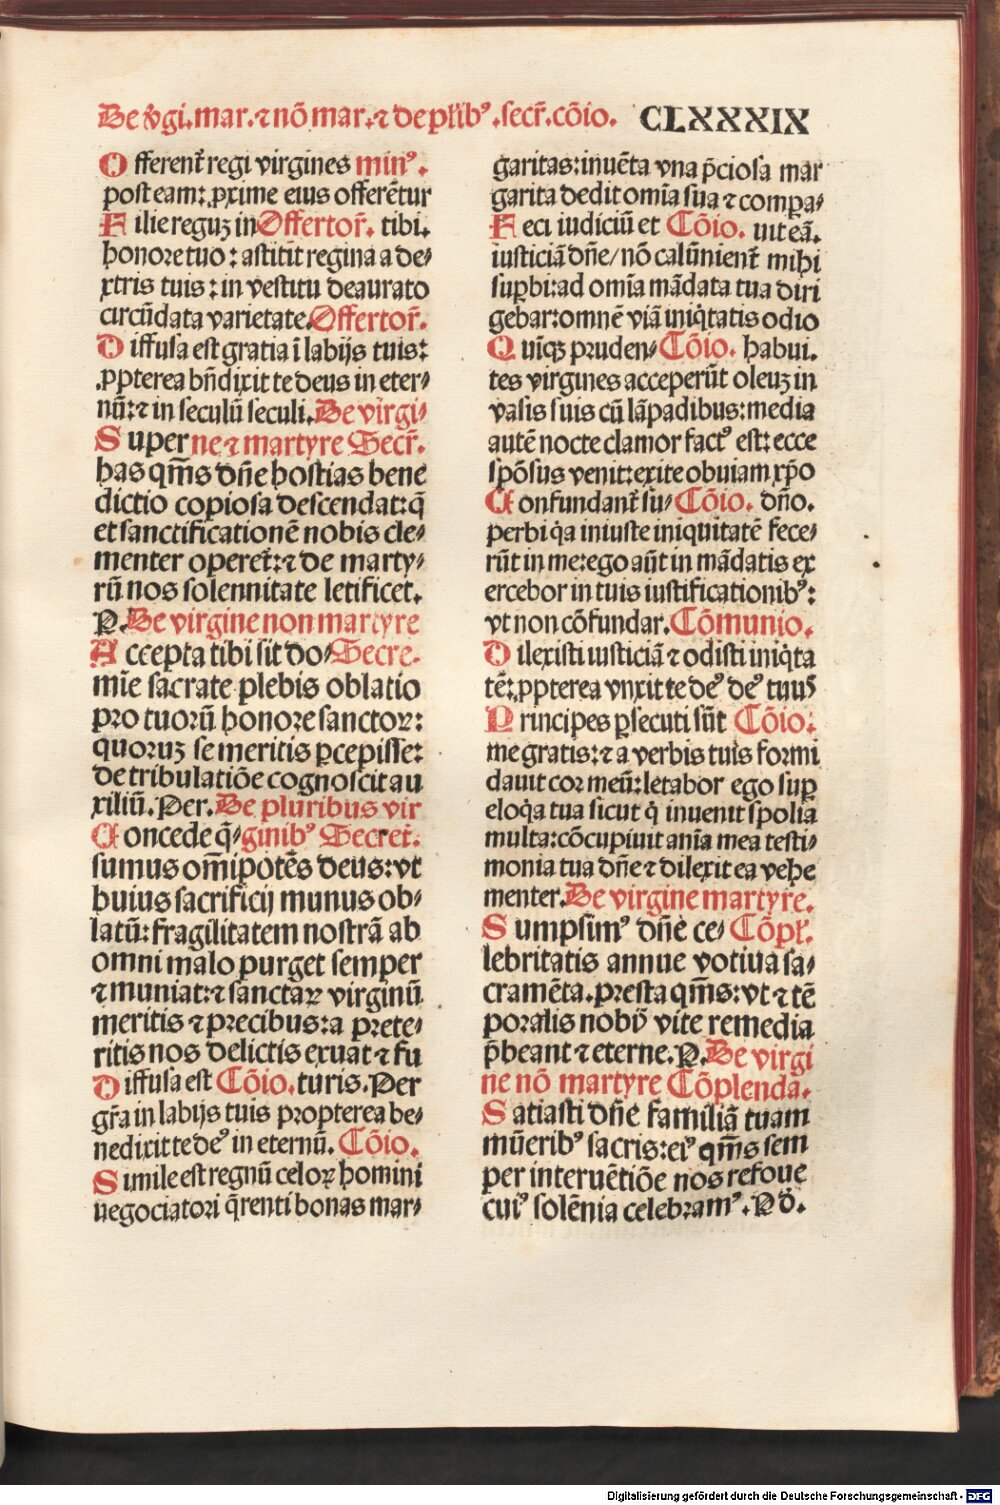 De v̄gi.mar.⁊ nō mar.⁊ de pl̄ib⁹.secr̄.cōio. CLXXXIX
Offerent̄ regi virgines min⁹.
post eam: ꝓxime eius offerētur
Filie reguʒ in Offertor̄. tibi.
honore tuo: astitit regina a de⸗
xtris tuis: in vestitu deaurato
circūdata varietate. Offertor̄.
Diffusa est gratia ī labijs tuis:
ꝓpterea bn̄dixit te deus in eter⸗
nū: ⁊ in seculū seculi. De virgi⸗
Super ne ⁊ martyre Secr̄.
has qm̄s dn̄e hostias bene
dictio copiosa descendat: q̄
et sanctificationē nobis cle⸗
menter operet̄: ⁊ de marty⸗
rū nos solennitate letificet.
P. De virgine non martyre
Accepta tibi sit do⸗ Secre.
mīe sacrate plebis oblatio
pro tuorū honore sanctoꝝ:
quoruʒ se meritis ꝑcepisse:
de tribulatiōe cognoscit au
xiliū. Per. De pluribus vir
Concede q̄⸗ ginib⁹ Secret̄.
sumus om̄ipotēs deus: vt
huius sacrificij munus ob⸗
latū: fragilitatem nostrā ab
omni malo purget semper
⁊ muniat: ⁊ sanctaꝝ virginū
meritis ⁊ precibus: a prete⸗
ritis nos delictis exuat ⁊ fu
Diffusa est Cōio. turis. Per
gr̄a in labijs tuis propterea be⸗
nedixit te de⁹ in eternū. Cōio.
Simile est regnū celoꝝ homini
negociatori q̄renti bonas mar⸗
garitas: inuēta vna p̄ciosa mar
garita dedit omīa sua ⁊ comꝑa⸗
Feci iudiciū et Cōio. uit eā.
iusticiā dn̄e/ nō calūnient̄ mihi
suꝑbi: ad omīa mādata tua diri
gebar: omnē viā iniq̇tatis odio
Quīqʒ pruden⸗ Cōio. habui.
tes virgines acceperūt oleuʒ in
vasis suis cū lāpadibus: media
autē nocte clamor fact⁹ est: ecce
spōsus venit: exite obuiam xp̄o
Confundant̄ su⸗ Cōio. dn̄o.
perbi q̇a iniuste iniquitatē fece⸗
rūt in me: ego aūt in mādatis ex
ercebor in tuis iustificationib⁹:
vt non cōfundar. Cōmunio.
Dilexisti iusticiā ⁊ odisti iniq̇ta
tē: ꝓpterea vnxit te de⁹ de⁹ tuus
Principes ꝑsecuti sūt Cōio.
me gratis: ⁊ a verbis tuis formi
dauit cor meū: letabor ego suꝑ
eloq̇a tua sicut q̇ inuenit spolia
multa: cōcupiuit anīa mea testi⸗
monia tua dn̄e ⁊ dilexit ea vehe
menter. De virgine martyre.
Sumpsim⁹ dn̄e ce⸗ Cōpl̄.
lebritatis annue votiua sa⸗
cramēta. presta qm̄s: vt ⁊ tē
poralis nob̄ vite remedia
p̄beant ⁊ eterne. P. De virgi
ne nō martyre Cōplenda.
Satiasti dn̄e familiā tuam
mūerib⁹ sacris: ei⁹ qm̄s sem
per interuētiōe nos refoue
cui⁹ solēnia celebram⁹. P d̄.
Digitalisierung gefördert durch die Deutsche Forschungsgemeinschaft - DFG